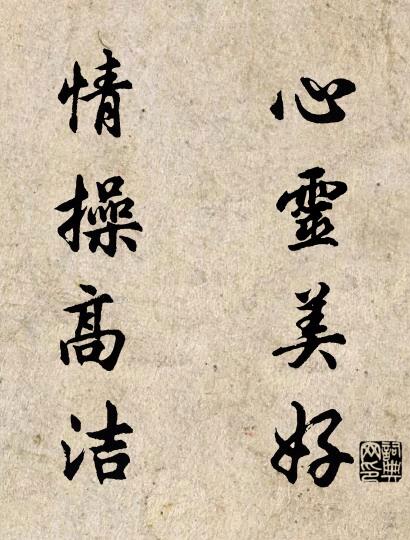 心靈美好
情操高洁
詞典網印